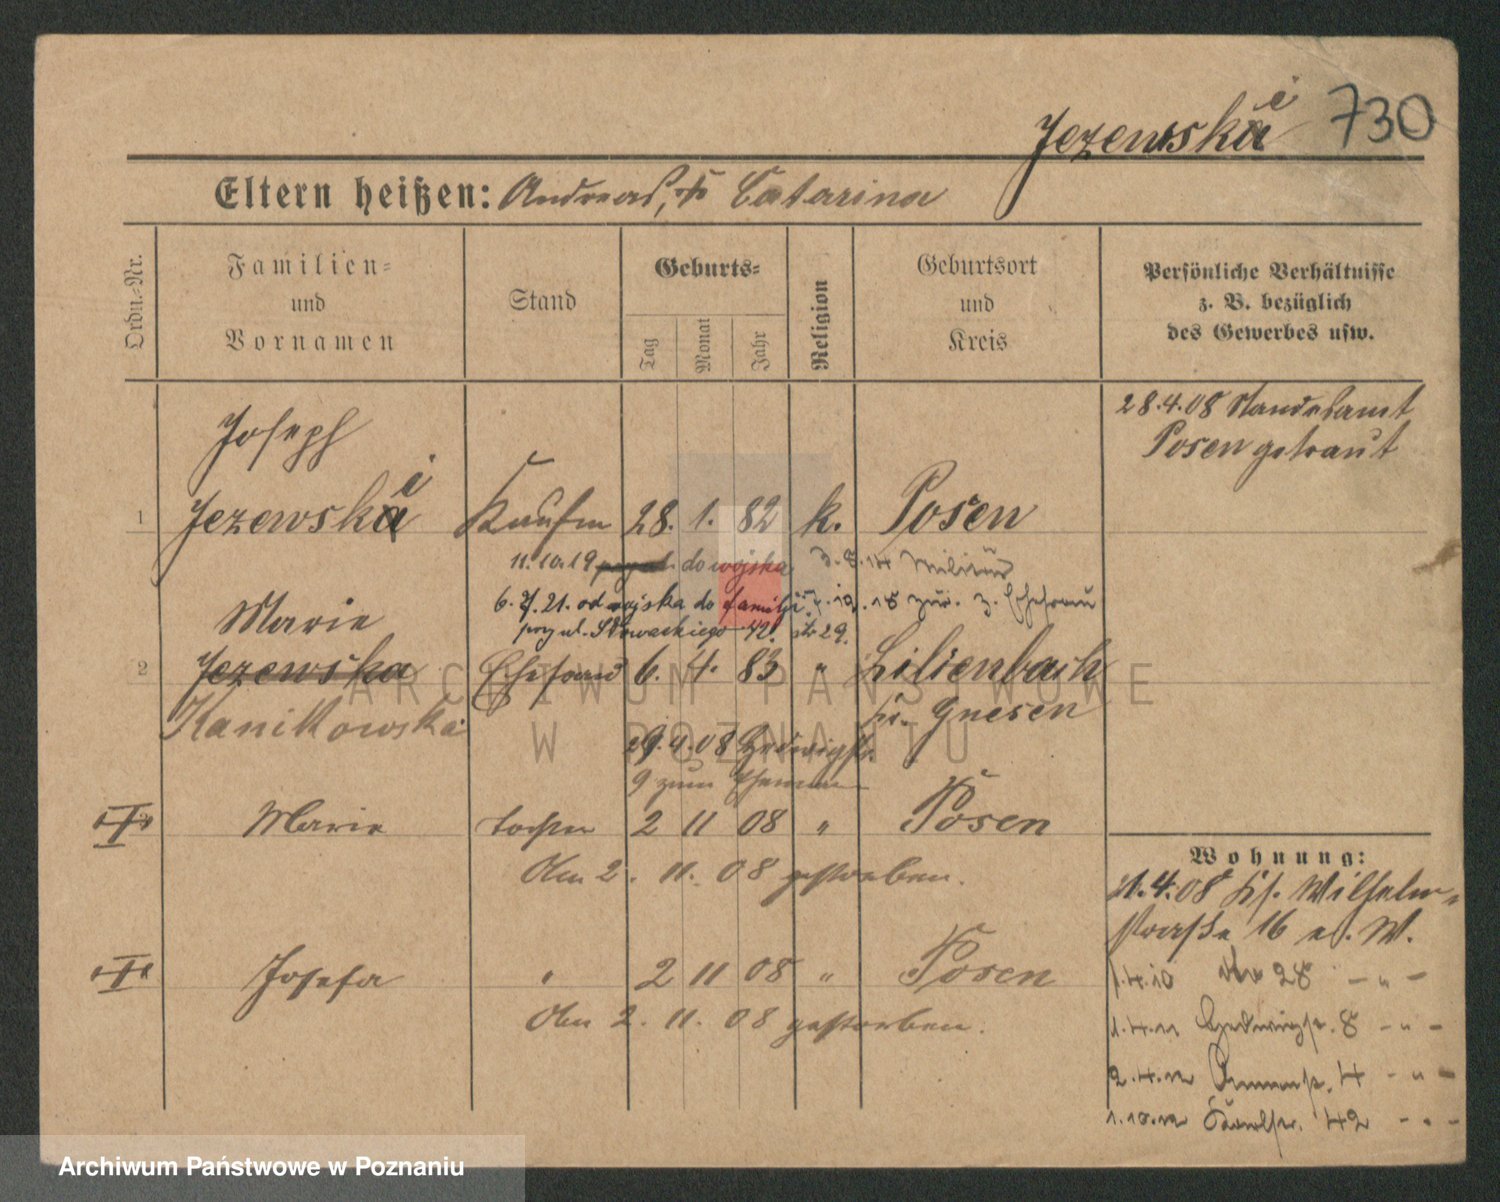 Jezewski 730
Eltern heißen: Andreas, † Catarina
Ordn.-Nr.
Familien-
und
Vornamen
Stand
Geburts-
Tag
Monat
Jahr
Religion
Geburtsort
und
Kreis
Persönliche Verhältnisse
z. B. bezüglich
des Gewerbes usw.
28.4.08 Standesamt
Posen getraut
Joseph
1 Jezewski Kaufm 28. 1. 82 k. Posen
11.10.19 do wojska 3.8.14 Militär
6.7.21. od wojska do familji. 12.18 zur. z. Ehefrau
przy ul. Słowackiego 42. 29.
Marie
2 Jezewska Ehefrau 6. 4. 83 " Lilienbach
Kanikowska Kr. Gnesen
29.4.08 Hedwigstr.
9 zum Ehemann
Marie Tochter 2 11 08 " Posen
Am 2. 11. 08 gestorben.
Josefa " 2 11 08 " Posen
Am 2. 11. 08 gestorben.
Wohnung:
1.4.08 Ks. Wilhelm-
straße 16 a. W.
1.4.10 28 - " -
1.4.11 Hedwigstr. 8 - " -
2.4.12 4 - " -
1.10.12 Karlstr. 42 - " -
ARCHIWUM PAŃSTWOWE
W POZNANIU
Archiwum Państwowe w Poznaniu